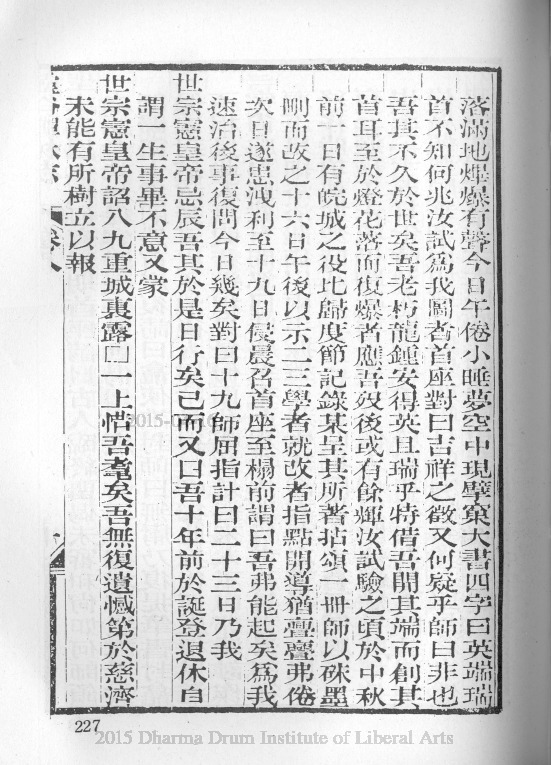 落滿地爆爆有聲今日午倦小睡夢空中現擘窠大書四字曰英端瑞
首不知何兆汝試為我圖者首座對曰吉祥之徵又何疑乎師曰非也
吾其不久於世矣吾老朽龍鍾安得英且瑞乎特借吾開其端而創其
首耳至於燈花落而復爆者應吾歿後或有餘輝汝試驗之頃於中秋
前一日有皖城之役比歸度節記錄某呈其所著拈頌一冊師以硃墨
刪而改之十六日午後以示二三學者就改者指點開導猶亹亹弗倦
次日遂患洩利至十九日侵晨召首座至榻前謂曰吾弗能起矣為我
速治後事復問今日幾矣對曰十九師屈指計曰二十三日乃我
世宗憲皇帝忌辰吾其於是日行矣已而又曰吾十年前於誕登退休自
謂一生事畢不意又蒙
世宗憲皇帝詔入九重城裏露一上悟吾耄矣吾無復遺憾第於慈濟
未能有所樹立以報
卷八
227
2015 Dharma Drum Institute of Liberal Arts